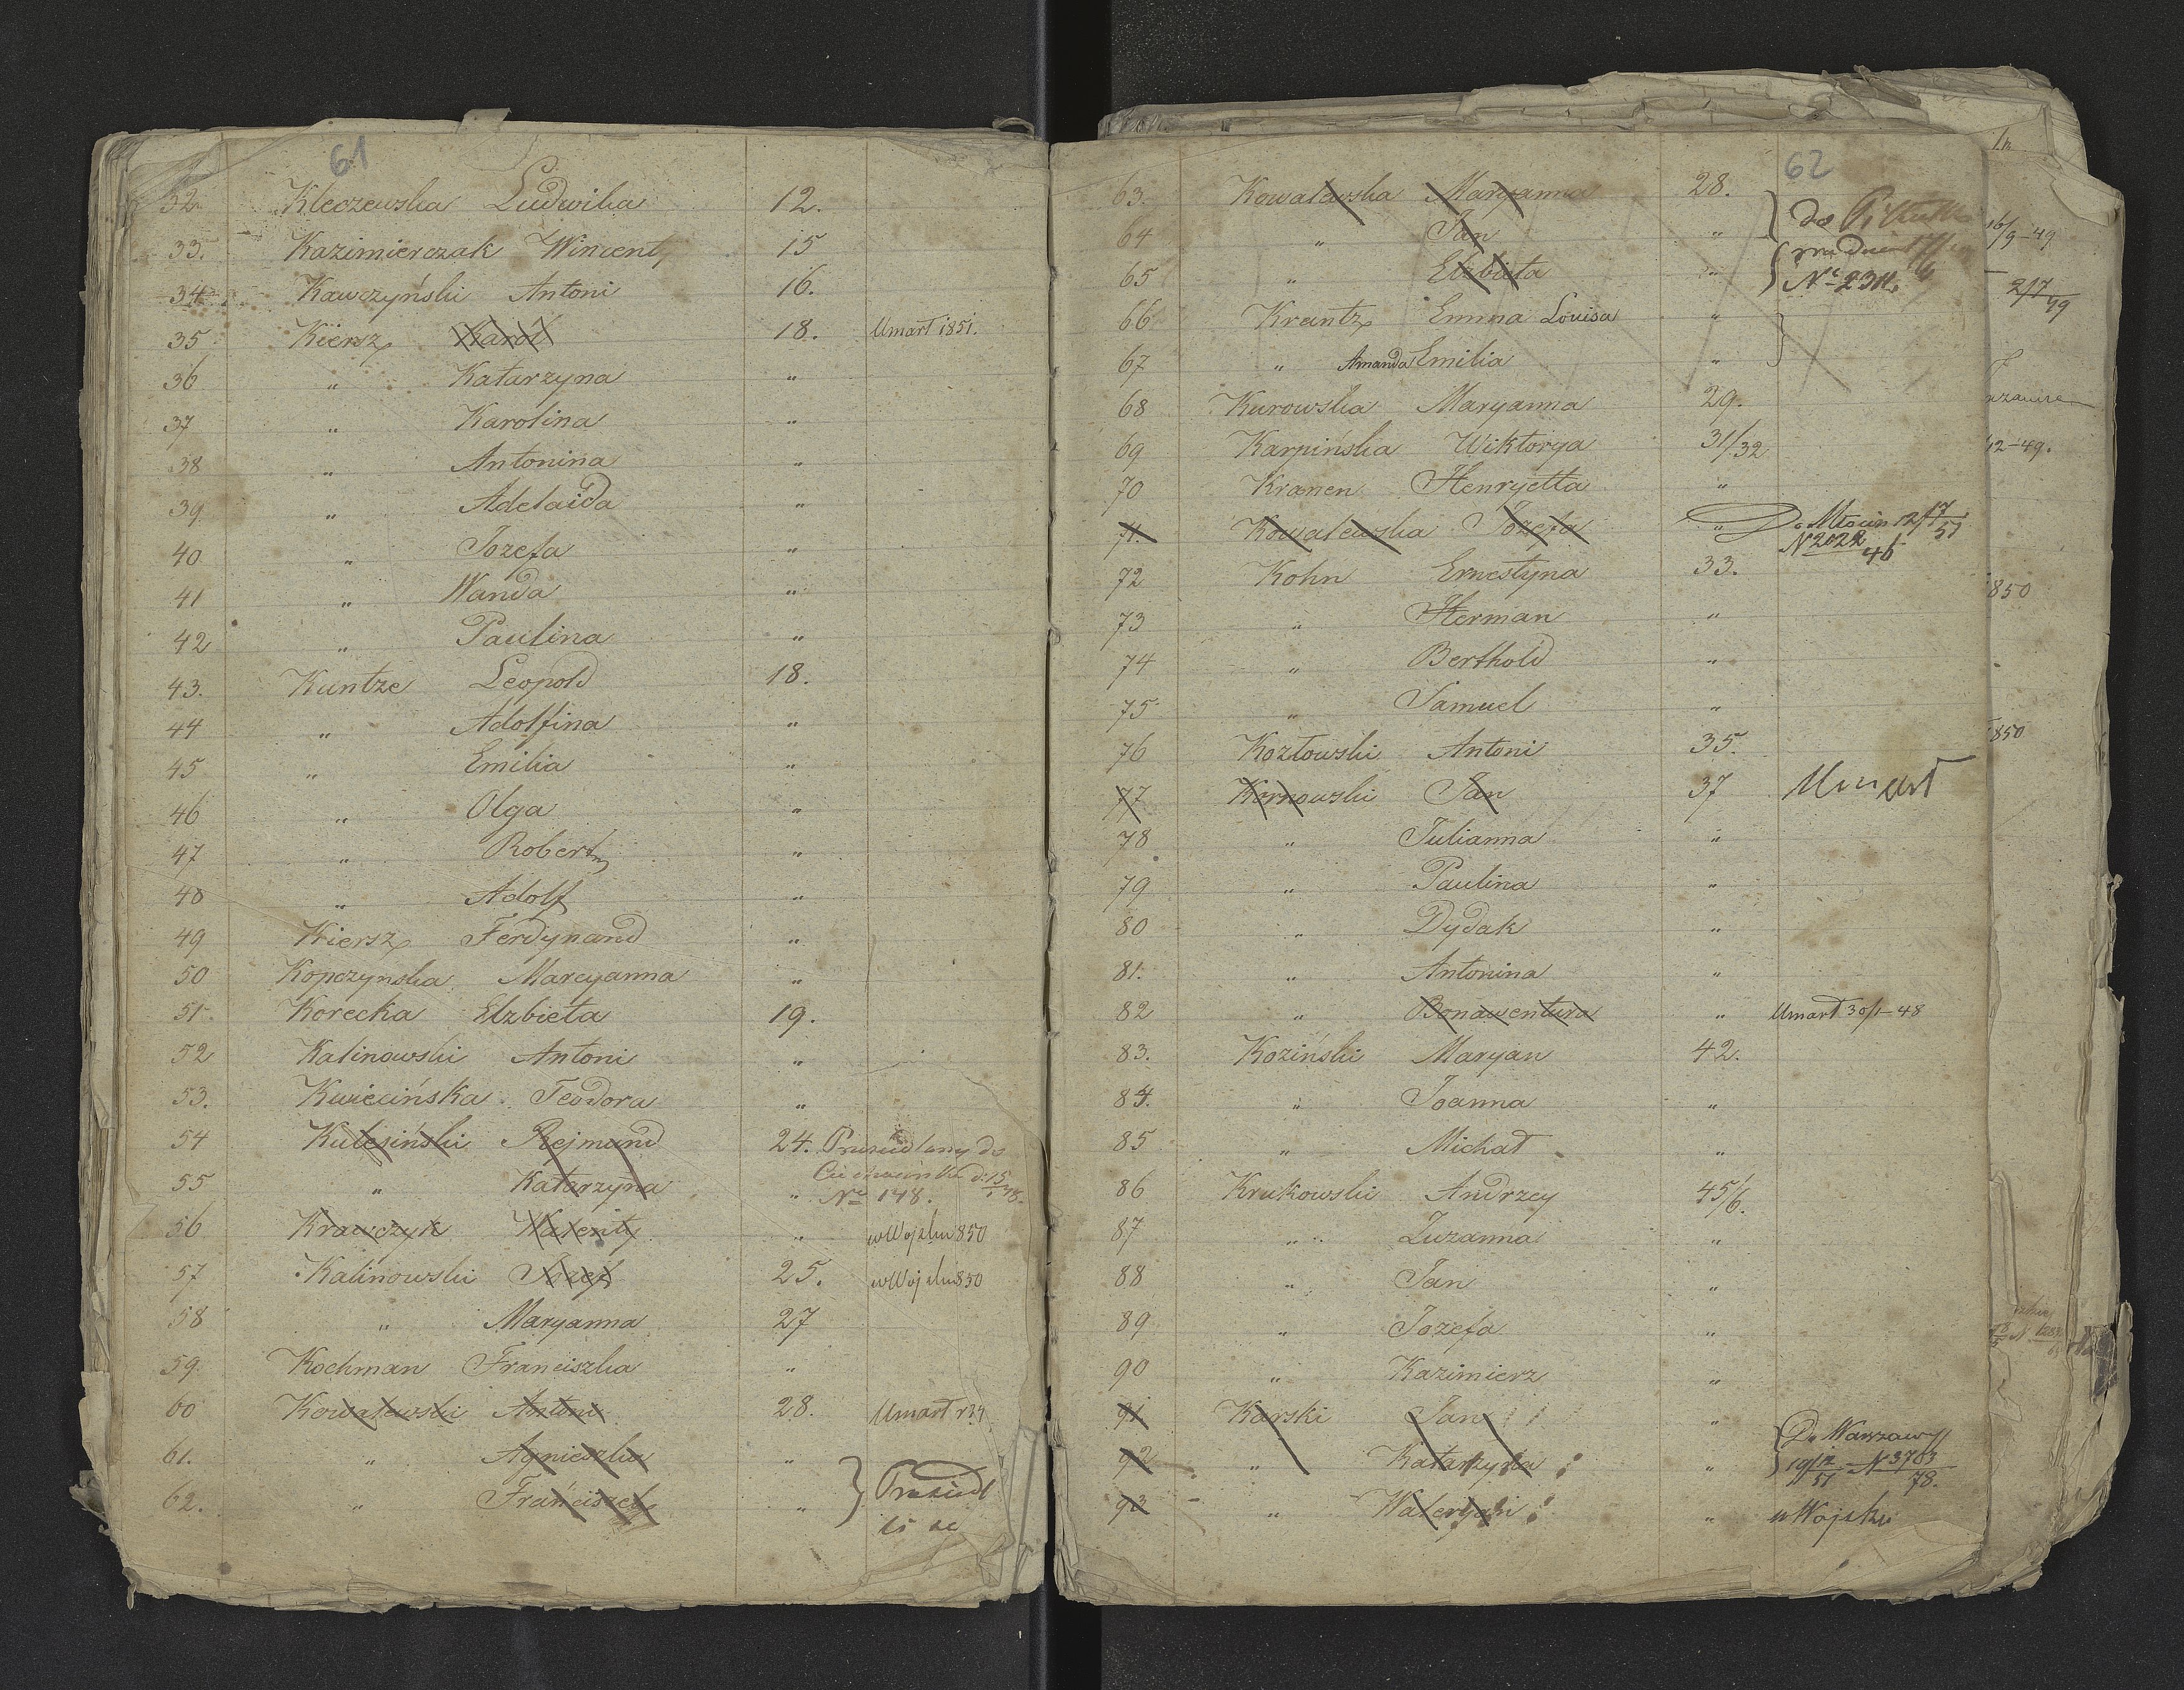 61
32. Kleczewska Ludwika 12.
33. Kazimierczak Wincenty 15
34 Kawczyński Antoni 16.
35 Kiersz Karol 18. Umarł 1851.
36 „ Katarzyna „
37 „ Karolina „
38 „ Antonina „
39 „ Adelaida „
40 „ Jozefa „
41 „ Wanda „
42 „ Paulina „
43. Kuntze Leopold 18.
44 „ Adolfina „
45 „ Emilia „
46 „ Olga „
47 „ Robert „
48 „ Adolf „
49 Kiersz Ferdynand „
50 Kopczynska Marcyanna „
51. Korecka Elzbieta 19.
52 Kalinowski Antoni „
53. Kwiecińska Teodora „
54 Kulesiński Rejmund 24. do
55 „ Katarzyna „ No 148.
56 Krawczyk Walenty „ w Wojsku 850
57 Kalinowski Józef 25. w Wojsku 850
58 „ Maryanna 27
59. Kochman Franciszka „
60 Kowalewski Antoni 28. Umarł
61. „ Agnieszka „
62. „ Franciszek „
62
63. Kowalewska Maryanna 28. do
64 „ Jan „
65 „ Elzbieta „ No
66 Krantz Emma Louisa „
67 „ Amanda Emilia „
68 Kurowska Maryanna 29.
69 Karpińska Wiktorya 31/32
70 Kranen Henryetta „
71. Kowalewska Jozefa „ Do Młocin 12/17 51
N 2022 46
72 Kohn Ernestyna 33.
73 „ Herman „
74 „ Berthold „
75 „ Samuel „
76 Kozłowski Antoni 35.
77 Kornowski Jan 37 Umarł
78 „ Julianna „
79 „ Paulina „
80 „ Dydak „
81. „ Antonina „
82 „ Bonawentura „ Umarł 30/1-48
83. Koziński Maryan 42.
84. „ Joanna „
85 „ Michał „
86 Krukowski Andrzey 45/6.
87 „ Zuzanna „
88 „ Jan „
89 „ Jozefa „
90 „ Kazimierz „
91 Karski Jan „ Do Warszawy
92 „ Katarzyna „ 19/12 51 N 3783 78.
93 „ Waleryan „ w Wojsku
16/9-49
2/7 49
12-49.
850
850